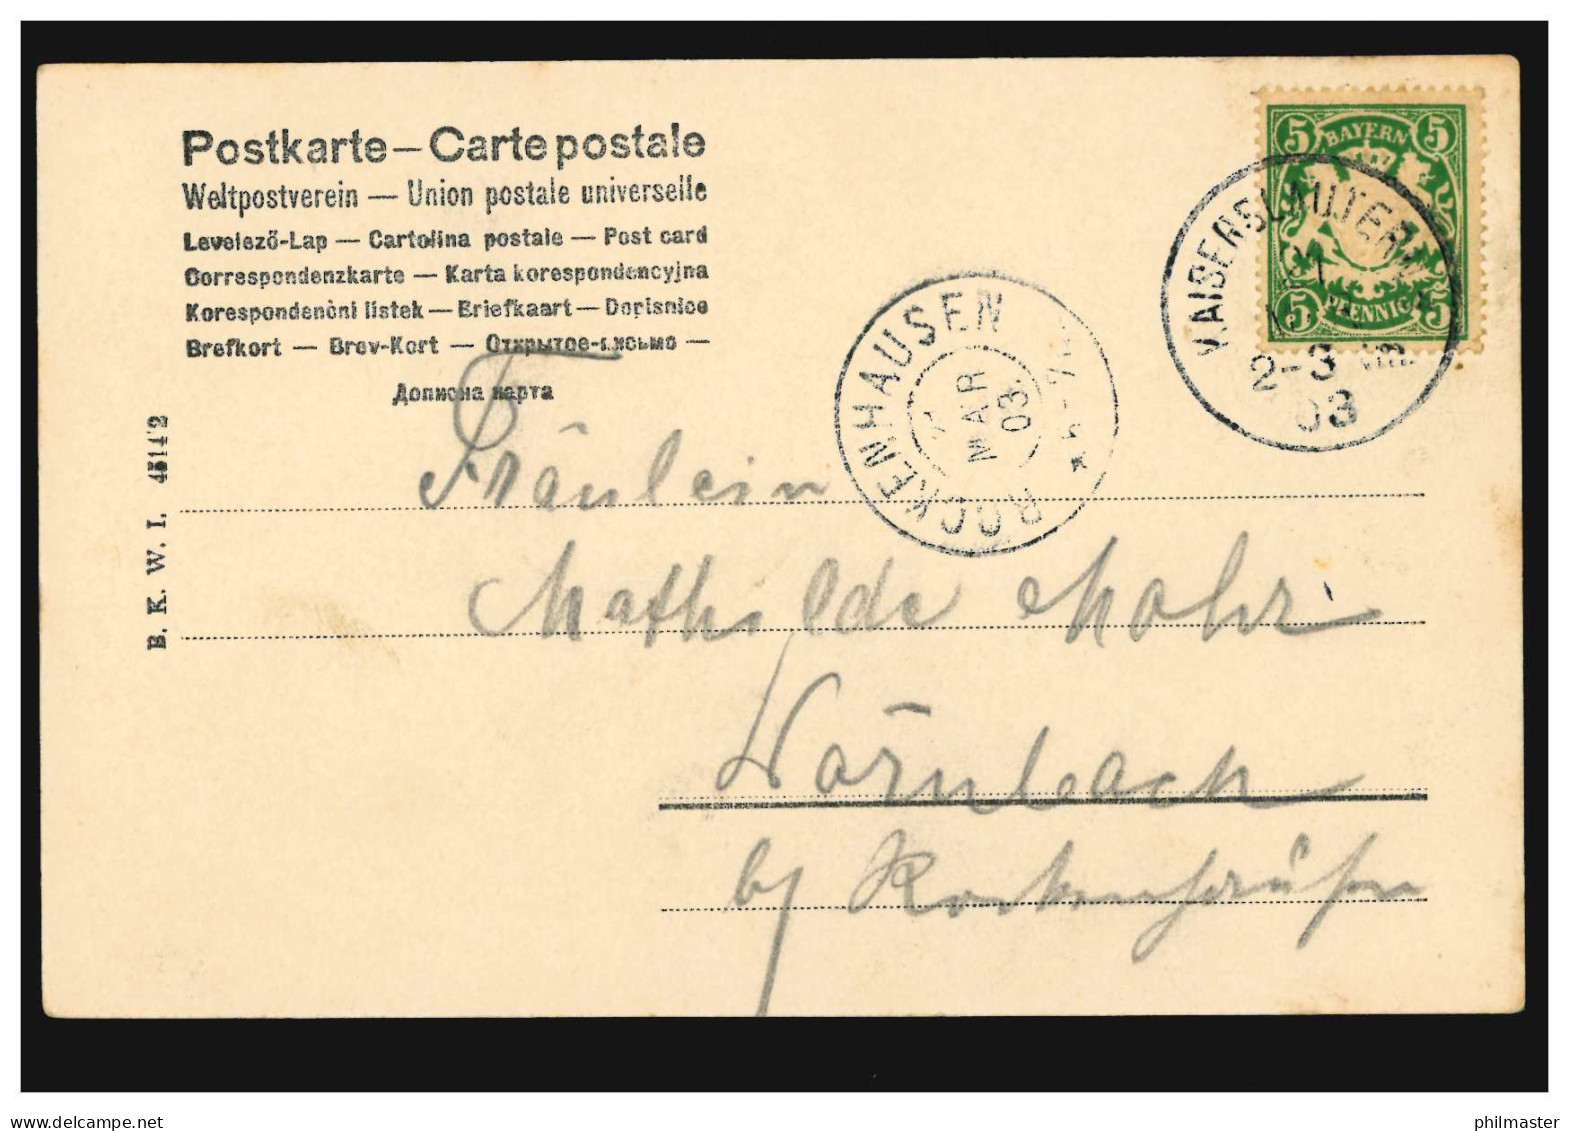 Postkarte – Carte postale
Weltpostverein — Union postale universelle
Levelező-Lap — Cartolina postale — Post card
Correspondenzkarte — Karta korespondencyjna
Korespondenční listek — Briefkaart — Dopisnice
Brefkort — Brev-Kort — Открытое письмо —
Дописна карта
B. K. W. I.
5 BAYERN 5
5 PFENNIG 5
KAISERSLAUTERN
2-3
03
ROCKENHAUSEN
MAR
03.
Fräulein
Mathilde Mohr
Dörnbach
by Rockenhausen
delcampe.net
philmaster